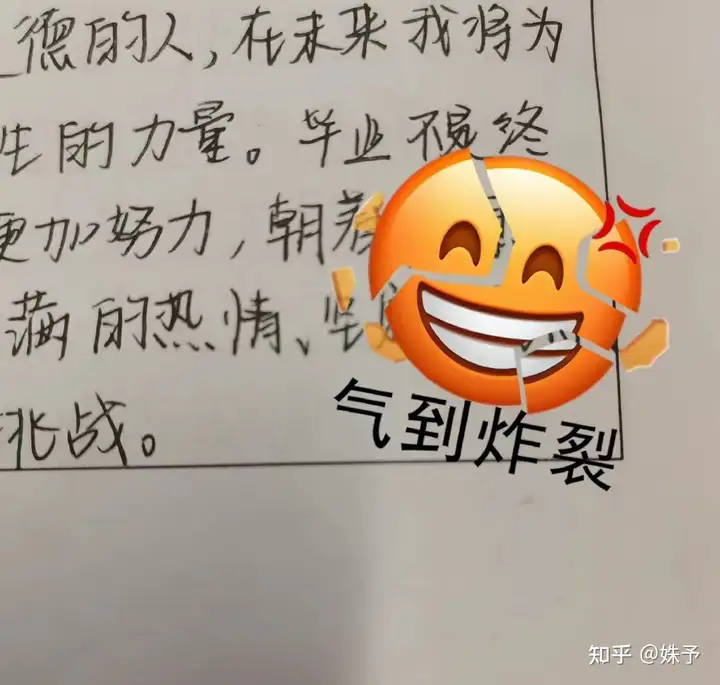 德的人,在未来我将为
生的力量。毕业不是终
更加努力,朝着
满的热情、坚
挑战。
气到炸裂
知乎 @姝予